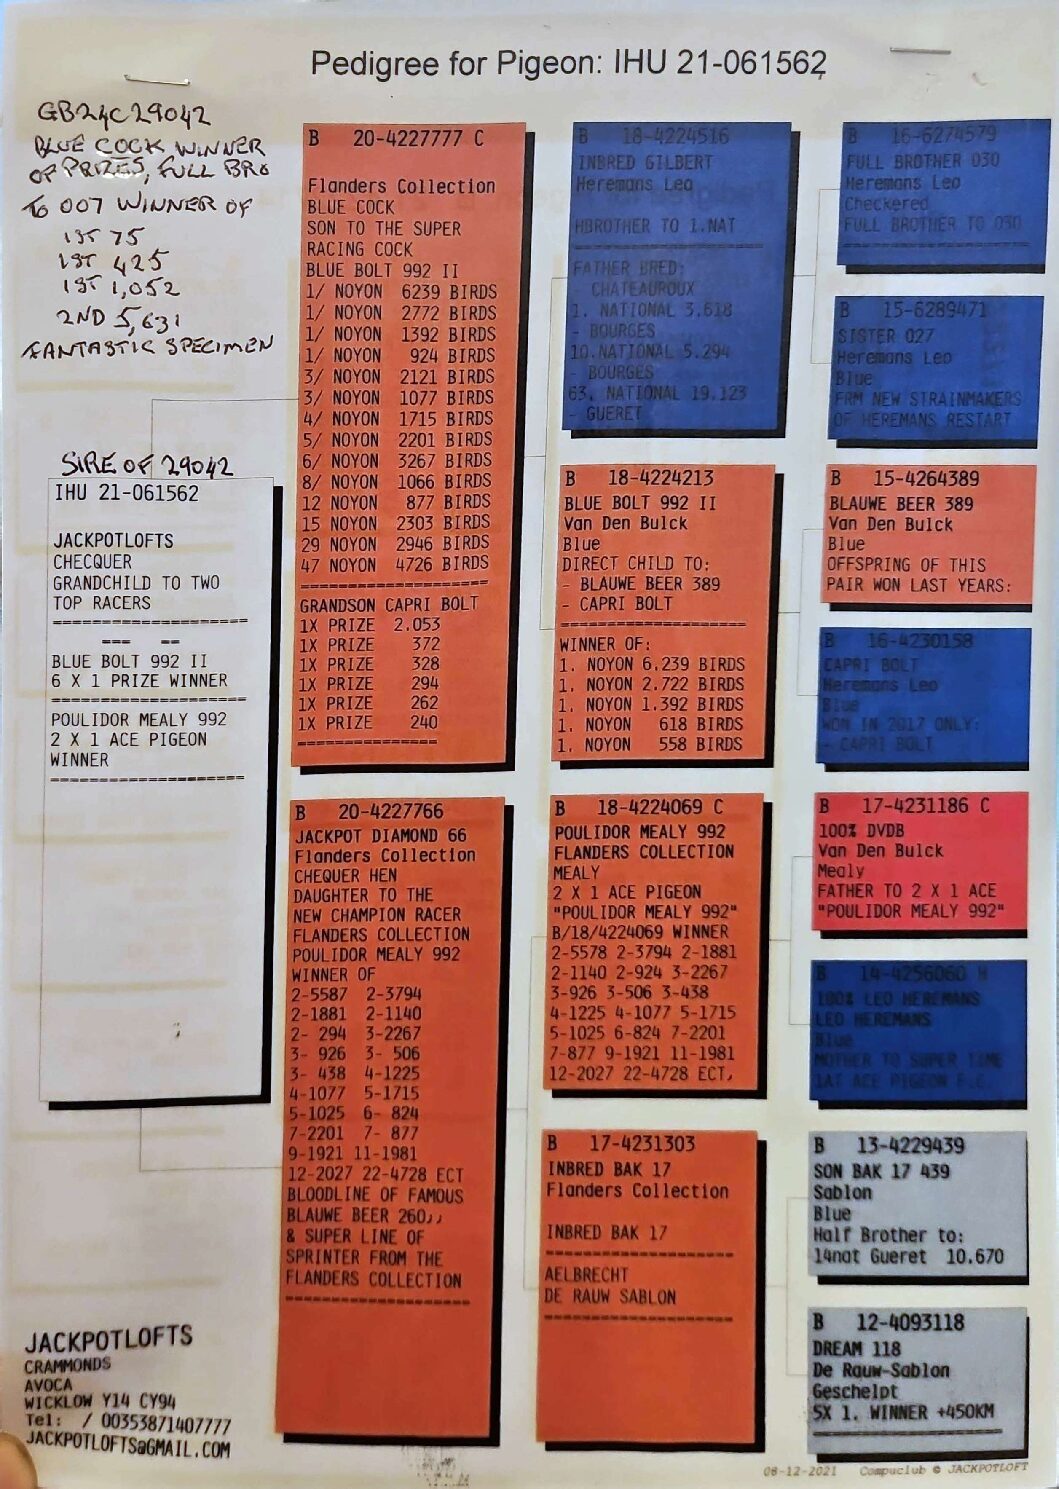 Pedigree for Pigeon: IHU 21-061562
GB24C29042
BLUE COCK WINNER
OF PRIZES, FULL BRO
TO 007 WINNER OF
1ST 75
1ST 425
1ST 1,052
2ND 5,631
FANTASTIC SPECIMEN
SIRE OF 29042
IHU 21-061562
JACKPOTLOFTS
CHECQUER
GRANDCHILD TO TWO
TOP RACERS
BLUE BOLT 992 II
6 X 1 PRIZE WINNER
POULIDOR MEALY 992
2 X 1 ACE PIGEON
WINNER
JACKPOTLOFTS
CRAMMONDS
AVOCA
WICKLOW Y14 CY94
Tel: / 00353871407777
JACKPOTLOFTS@GMAIL.COM
B 20-4227777 C
Flanders Collection
BLUE COCK
SON TO THE SUPER
RACING COCK
BLUE BOLT 992 II
1/ NOYON 6239 BIRDS
1/ NOYON 2772 BIRDS
1/ NOYON 1392 BIRDS
1/ NOYON 924 BIRDS
3/ NOYON 2121 BIRDS
3/ NOYON 1077 BIRDS
4/ NOYON 1715 BIRDS
5/ NOYON 2201 BIRDS
6/ NOYON 3267 BIRDS
8/ NOYON 1066 BIRDS
12 NOYON 877 BIRDS
15 NOYON 2303 BIRDS
29 NOYON 2946 BIRDS
47 NOYON 4726 BIRDS
GRANDSON CAPRI BOLT
1X PRIZE 2.053
1X PRIZE 372
1X PRIZE 328
1X PRIZE 294
1X PRIZE 262
1X PRIZE 240
B 20-4227766
JACKPOT DIAMOND 66
Flanders Collection
CHEQUER HEN
DAUGHTER TO THE
NEW CHAMPION RACER
FLANDERS COLLECTION
POULIDOR MEALY 992
WINNER OF
2-5587 2-3794
2-1881 2-1140
2- 294 3-2267
3- 926 3- 506
3- 438 4-1225
4-1077 5-1715
5-1025 6- 824
7-2201 7- 877
9-1921 11-1981
12-2027 22-4728 ECT
BLOODLINE OF FAMOUS
BLAUWE BEER 260,,
& SUPER LINE OF
SPRINTER FROM THE
FLANDERS COLLECTION
B 18-4224516
INBRED GILBERT
Heremans Leo
HBROTHER TO 1.NAT
FATHER BRED:
- CHATEAUROUX
1. NATIONAL 3.618
- BOURGES
10.NATIONAL 5.294
- BOURGES
63. NATIONAL 19.123
- GUERET
B 18-4224213
BLUE BOLT 992 II
Van Den Bulck
Blue
DIRECT CHILD TO:
- BLAUWE BEER 389
- CAPRI BOLT
WINNER OF:
1. NOYON 6.239 BIRDS
1. NOYON 2.722 BIRDS
1. NOYON 1.392 BIRDS
1. NOYON 618 BIRDS
1. NOYON 558 BIRDS
B 18-4224069 C
POULIDOR MEALY 992
FLANDERS COLLECTION
MEALY
2 X 1 ACE PIGEON
"POULIDOR MEALY 992"
B/18/4224069 WINNER
2-5578 2-3794 2-1881
2-1140 2-924 3-2267
3-926 3-506 3-438
4-1225 4-1077 5-1715
5-1025 6-824 7-2201
7-877 9-1921 11-1981
12-2027 22-4728 ECT,
B 17-4231303
INBRED BAK 17
Flanders Collection
INBRED BAK 17
AELBRECHT
DE RAUW SABLON
B 16-6274579
FULL BROTHER 030
Heremans Leo
Checkered
FULL BROTHER TO 030
B 15-6289471
SISTER 027
Heremans Leo
Blue
FRM NEW STRAINMAKERS
OF HEREMANS RESTART
B 15-4264389
BLAUWE BEER 389
Van Den Bulck
Blue
OFFSPRING OF THIS
PAIR WON LAST YEARS:
B 16-4230158
CAPRI BOLT
Heremans Leo
Blue
WON IN 2017 ONLY:
- CAPRI BOLT
B 17-4231186 C
100% DVDB
Van Den Bulck
Mealy
FATHER TO 2 X 1 ACE
"POULIDOR MEALY 992"
B 14-4256060 H
100% LEO HEREMANS
LEO HEREMANS
Blue
MOTHER TO SUPER TIME
1AT ACE PIGEON F.C.
B 13-4229439
SON BAK 17 439
Sablon
Blue
Half Brother to:
14nat Gueret 10.670
B 12-4093118
DREAM 118
De Rauw-Sablon
Geschelpt
5X 1. WINNER +450KM
08-12-2021 Compuclub © JACKPOTLOFT